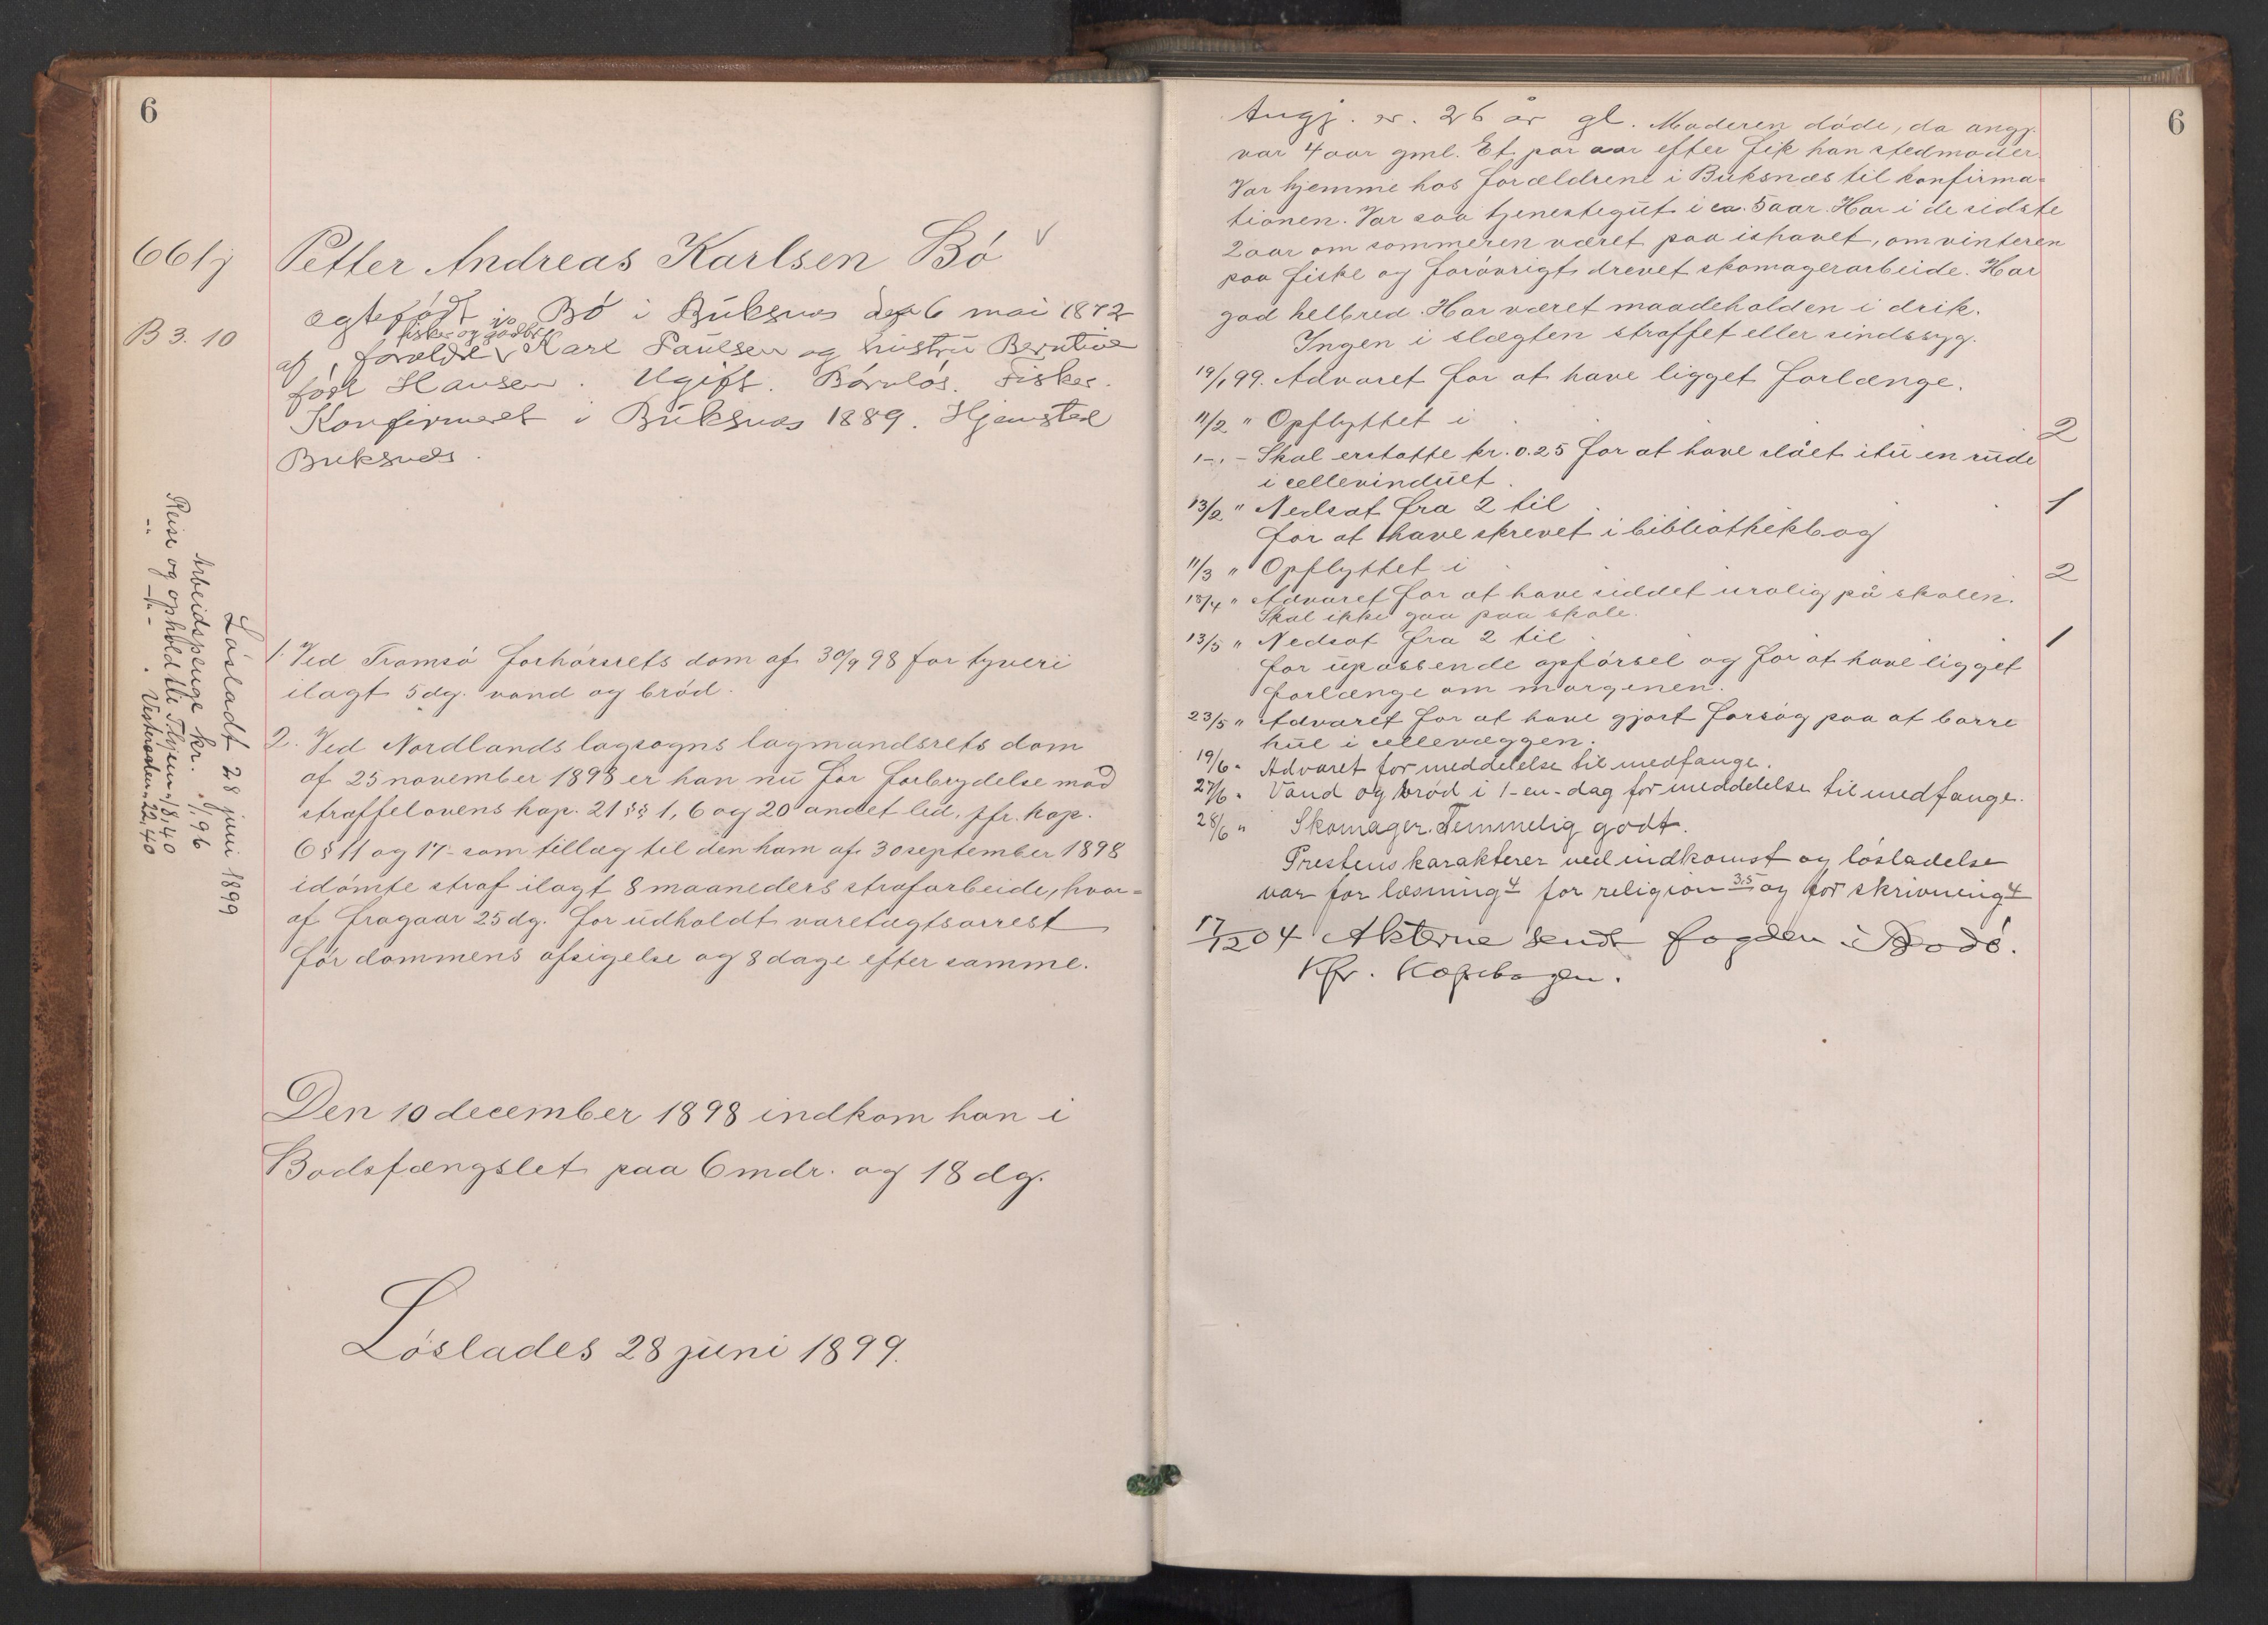 6
661j
B 3. 10
Petter Andreas Karlsen Bó
ægtefódt på Bó i Buksnæs den 6 mai 1872
fisker og gaardbr.
af forældre Karl Paulsen og hustru Berntine
fódt Hansen. Ugift. Bórnlós. Fisker.
Konfirmeret i Buksnæs 1889. Hjemsted
Buksnæs.
Lósladt 28 juni 1899
Arbeidspenge kr. 1,96
Reise og ophold til Thjem „ 18,40
„ -"- „ Vesteraalen „ 22,40
1. Ved Tromsó forhórsrets dom af 30/9 98 for tyveri
ilagt 5 dg. vand og bród.
2. Ved Nordlands lagsogns lagmandsrets dom
af 25 november 1898 er han nu for forbrydelse mod
straffelovens kap. 21 §§ 1, 6 og 20 andet led, jfr. kap.
6 § 11 og 17 - som tillæg til den ham af 30 september 1898
idómte straf ilagt 8 maaneders strafarbeide, hvor=
af fragaar 25 dg. for udholdt varetægtsarrest
fór dommens afsigelse og 8 dage efter samme.
Den 10 december 1898 indkom han i
Bodsfængslet paa 6 mdr. og 18 dg.
Lóslades 28 juni 1899.
6
Angj. er. 26 år gl. Moderen dóde, da angj.
var 4 aar gml. Et par aar efter fik han stedmoder.
Var hjemme hos forældrene i Buksnæs til konfirma=
tionen. Var saa tjenestegut i ca. 5 aar. Har i de sidste
2 aar om sommeren været paa ishavet, om vinteren
paa fiske og foróvrigt drevet skomagerarbeide. Har
god helbred. Har været maadeholden i drik.
Ingen i slægten straffet eller sindssyg.
19/1 99. Advaret for at have ligget forlænge.
11/2 " Opflyttet i 2
-"- Skal erstatte kr. 0.25 for at have slået itu en rude
i cellevinduet.
13/2 " Nedsat fra 2 til 1
for at have skrevet i bibliothekbog
11/3 " Opflyttet i 2
18/4 " Advaret for at have siddet urolig på skolen.
Skal ikke gaa paa skole.
13/5 " Nedsat fra 2 til 1
for upassende opfórsel og for at have ligget
forlænge om morgenen.
23/5 " Advaret for at have gjort forsóg paa at borre
hul i cellevæggen.
19/6 " Advaret for meddelelse til medfange.
27/6 " Vand og bród i 1 - en - dag for meddelelse til medfange.
28/6 " Skomager. Temmelig godt.
Prestens karakterer ved indkomst og lósladelse
var for læsning 4 for religion 3.5 og for skrivning 4
17/12 04 Akterne sendt fogden i Bodó.
Kfr. Kopibogen.